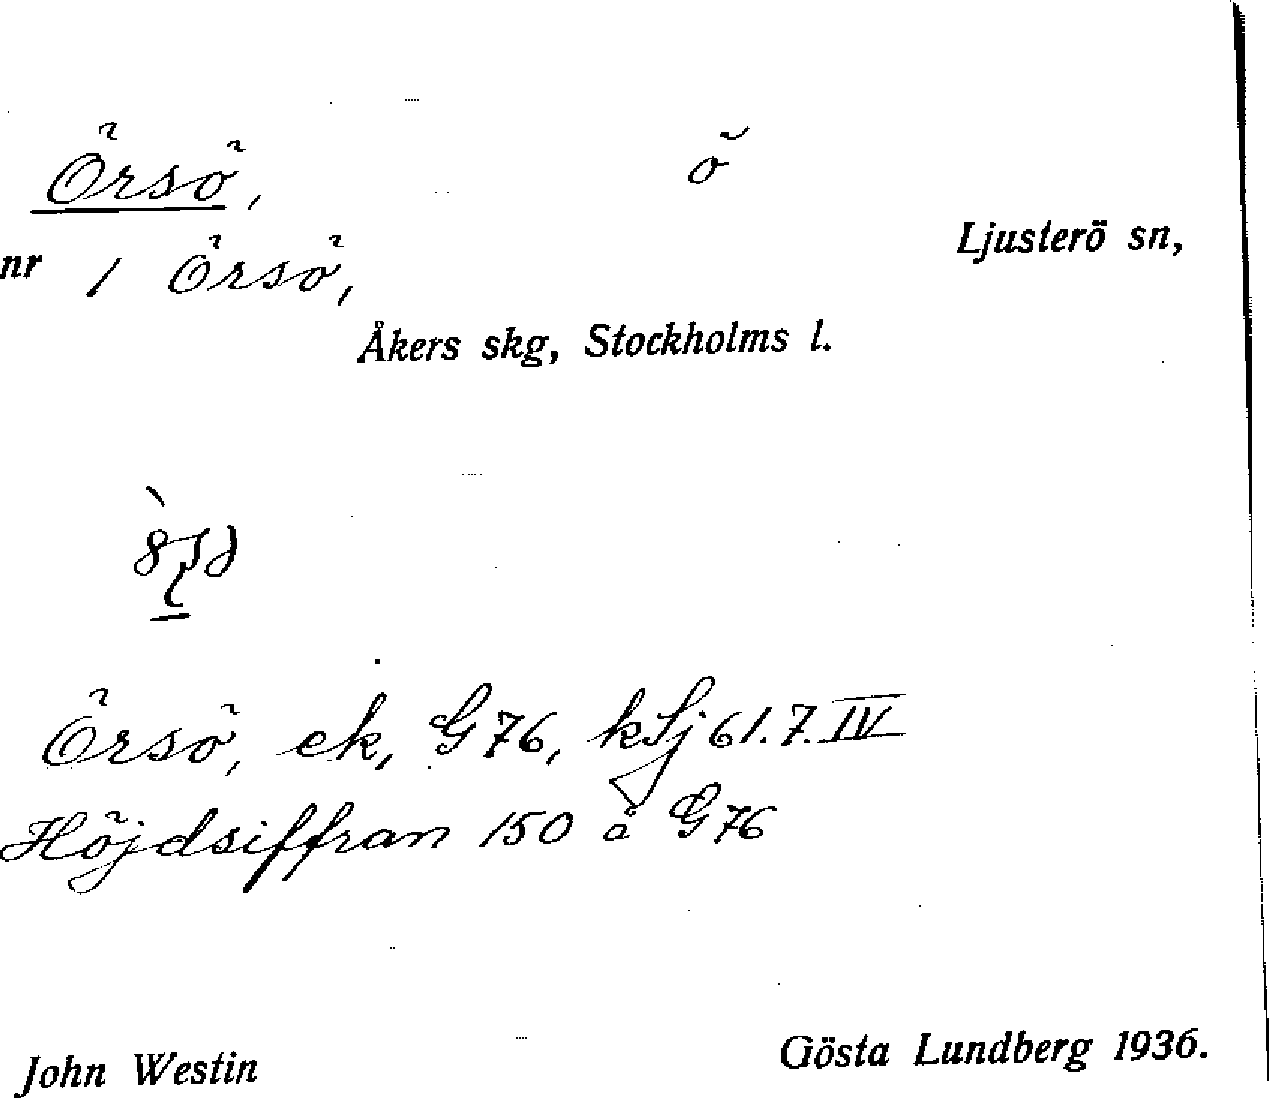 Örsö, ö
Ljusterö sn,
nr 1 Örsö,
Åkers skg, Stockholms l.
Örsö, ek, G76, kSj 61.7.IV
Höjdsiffran 150 å G76
John Westin Gösta Lundberg 1936.